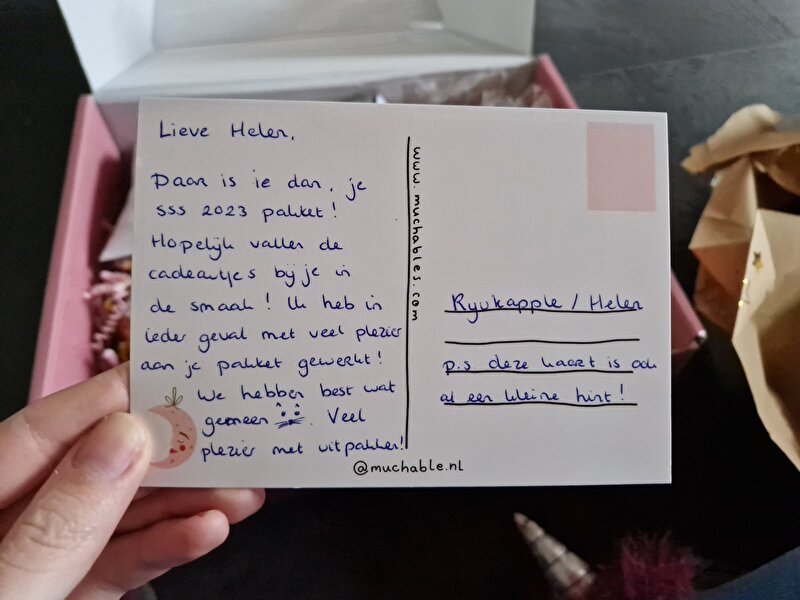 Lieve Helen,
Daar is ie dan, je
SSS 2023 pakket!
Hopelijk vallen de
cadeautjes bij je in
de smaak! Ik heb in
ieder geval met veel plezier
aan je pakket gewerkt!
We hebben best wat
gemeen. Veel
plezier met uitpakken!
www.muchables.com
Ryukapple / Helen
p.s deze kaart is ook
al een kleine hint!
@muchable.nl